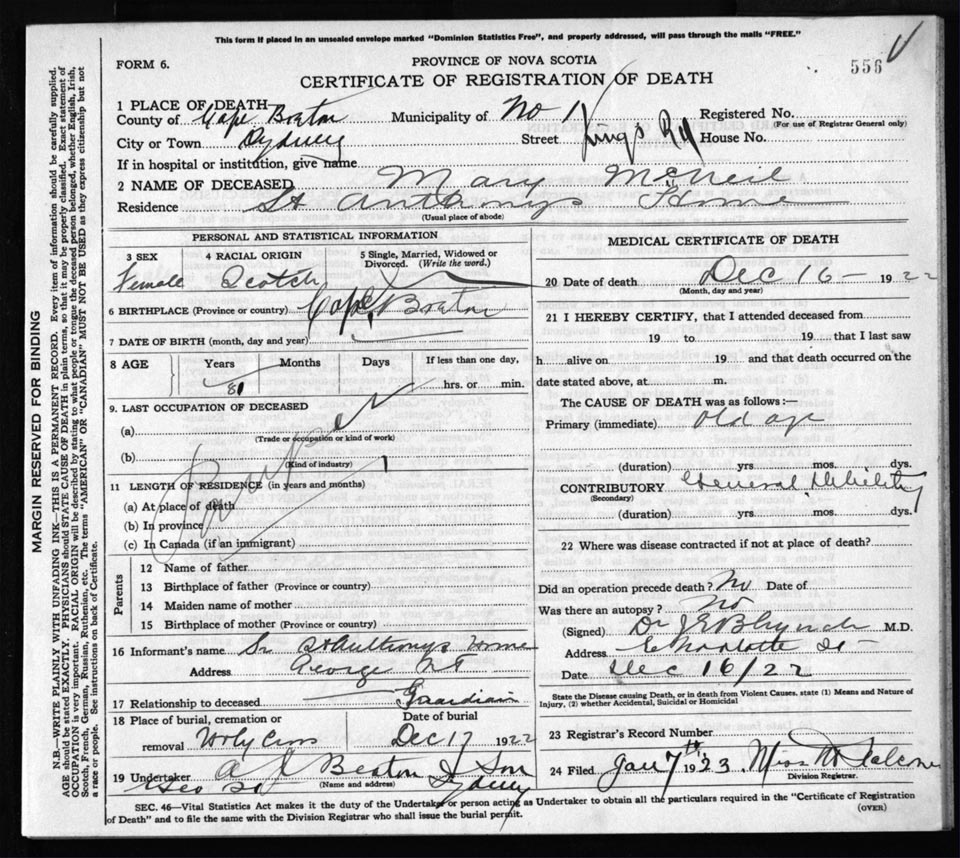 This form if placed in an unsealed envelope marked "Dominion Statistics Free", and properly addressed, will pass through the mails "FREE."
FORM 6.
PROVINCE OF NOVA SCOTIA
556
CERTIFICATE OF REGISTRATION OF DEATH
1 PLACE OF DEATH
County of Cape Breton Municipality of No 1 Registered No.
(For use of Registrar General only)
City or Town Sydney Street Kings Rd House No.
If in hospital or institution, give name
2 NAME OF DECEASED Mary McNeil
Residence St Anthonys Home
(Usual place of abode)
PERSONAL AND STATISTICAL INFORMATION
3 SEX 4 RACIAL ORIGIN 5 Single, Married, Widowed or Divorced. (Write the word.)
Female Scotch
6 BIRTHPLACE (Province or country) Cape Breton
7 DATE OF BIRTH (month, day and year)
8 AGE Years Months Days If less than one day,
81 hrs. or min.
9. LAST OCCUPATION OF DECEASED
(a)
(Trade or occupation or kind of work)
(b)
(Kind of industry)
11 LENGTH OF RESIDENCE (in years and months)
(a) At place of death
(b) In province
(c) In Canada (if an immigrant)
Parents
12 Name of father
13 Birthplace of father (Province or country)
14 Maiden name of mother
15 Birthplace of mother (Province or country)
16 Informant's name St Anthonys Home
Address George St
17 Relationship to deceased Guardian
18 Place of burial, cremation or Date of burial
removal Holy Cross Dec 17 1922
19 Undertaker A J Beaton & Son
(Name and address)
Geo St Sydney
MEDICAL CERTIFICATE OF DEATH
20 Date of death Dec 16 - 1922
(Month, day and year)
21 I HEREBY CERTIFY, that I attended deceased from
19 to 19 that I last saw
h alive on 19 and that death occurred on the
date stated above, at m.
The CAUSE OF DEATH was as follows :—
Primary (immediate) old age
(duration) yrs mos. dys.
CONTRIBUTORY General debility
(Secondary)
(duration) yrs mos. dys.
22 Where was disease contracted if not at place of death?
Did an operation precede death? No Date of
Was there an autopsy? No
(Signed) Dr M.D.
Address Charlotte St
Date Dec 16/22
State the Disease causing Death, or in death from Violent Causes, state (1) Means and Nature of
Injury, (2) whether Accidental, Suicidal or Homicidal
23 Registrar's Record Number
24 Filed Jan 7th 1923 Miss M
Division Registrar.
SEC. 46—Vital Statistics Act makes it the duty of the Undertaker or person acting as Undertaker to obtain all the particulars required in the "Certificate of Registration
of Death" and to file the same with the Division Registrar who shall issue the burial permit.
(OVER)
MARGIN RESERVED FOR BINDING
N.B.—WRITE PLAINLY WITH UNFADING INK—THIS IS A PERMANENT RECORD. Every item of information should be carefully supplied.
AGE should be stated EXACTLY. PHYSICIANS should STATE CAUSE OF DEATH in plain terms, so that it may be properly classified. Exact statement of
OCCUPATION is very important. RACIAL ORIGIN will be described by stating to what people or tongue the deceased person belonged, whether English, Irish,
Scotch, French, German, Russian, Ruthenian, etc. The terms "AMERICAN" OR "CANADIAN" MUST NOT BE USED as they express citizenship but not
a race or people. See instructions on back of Certificate.